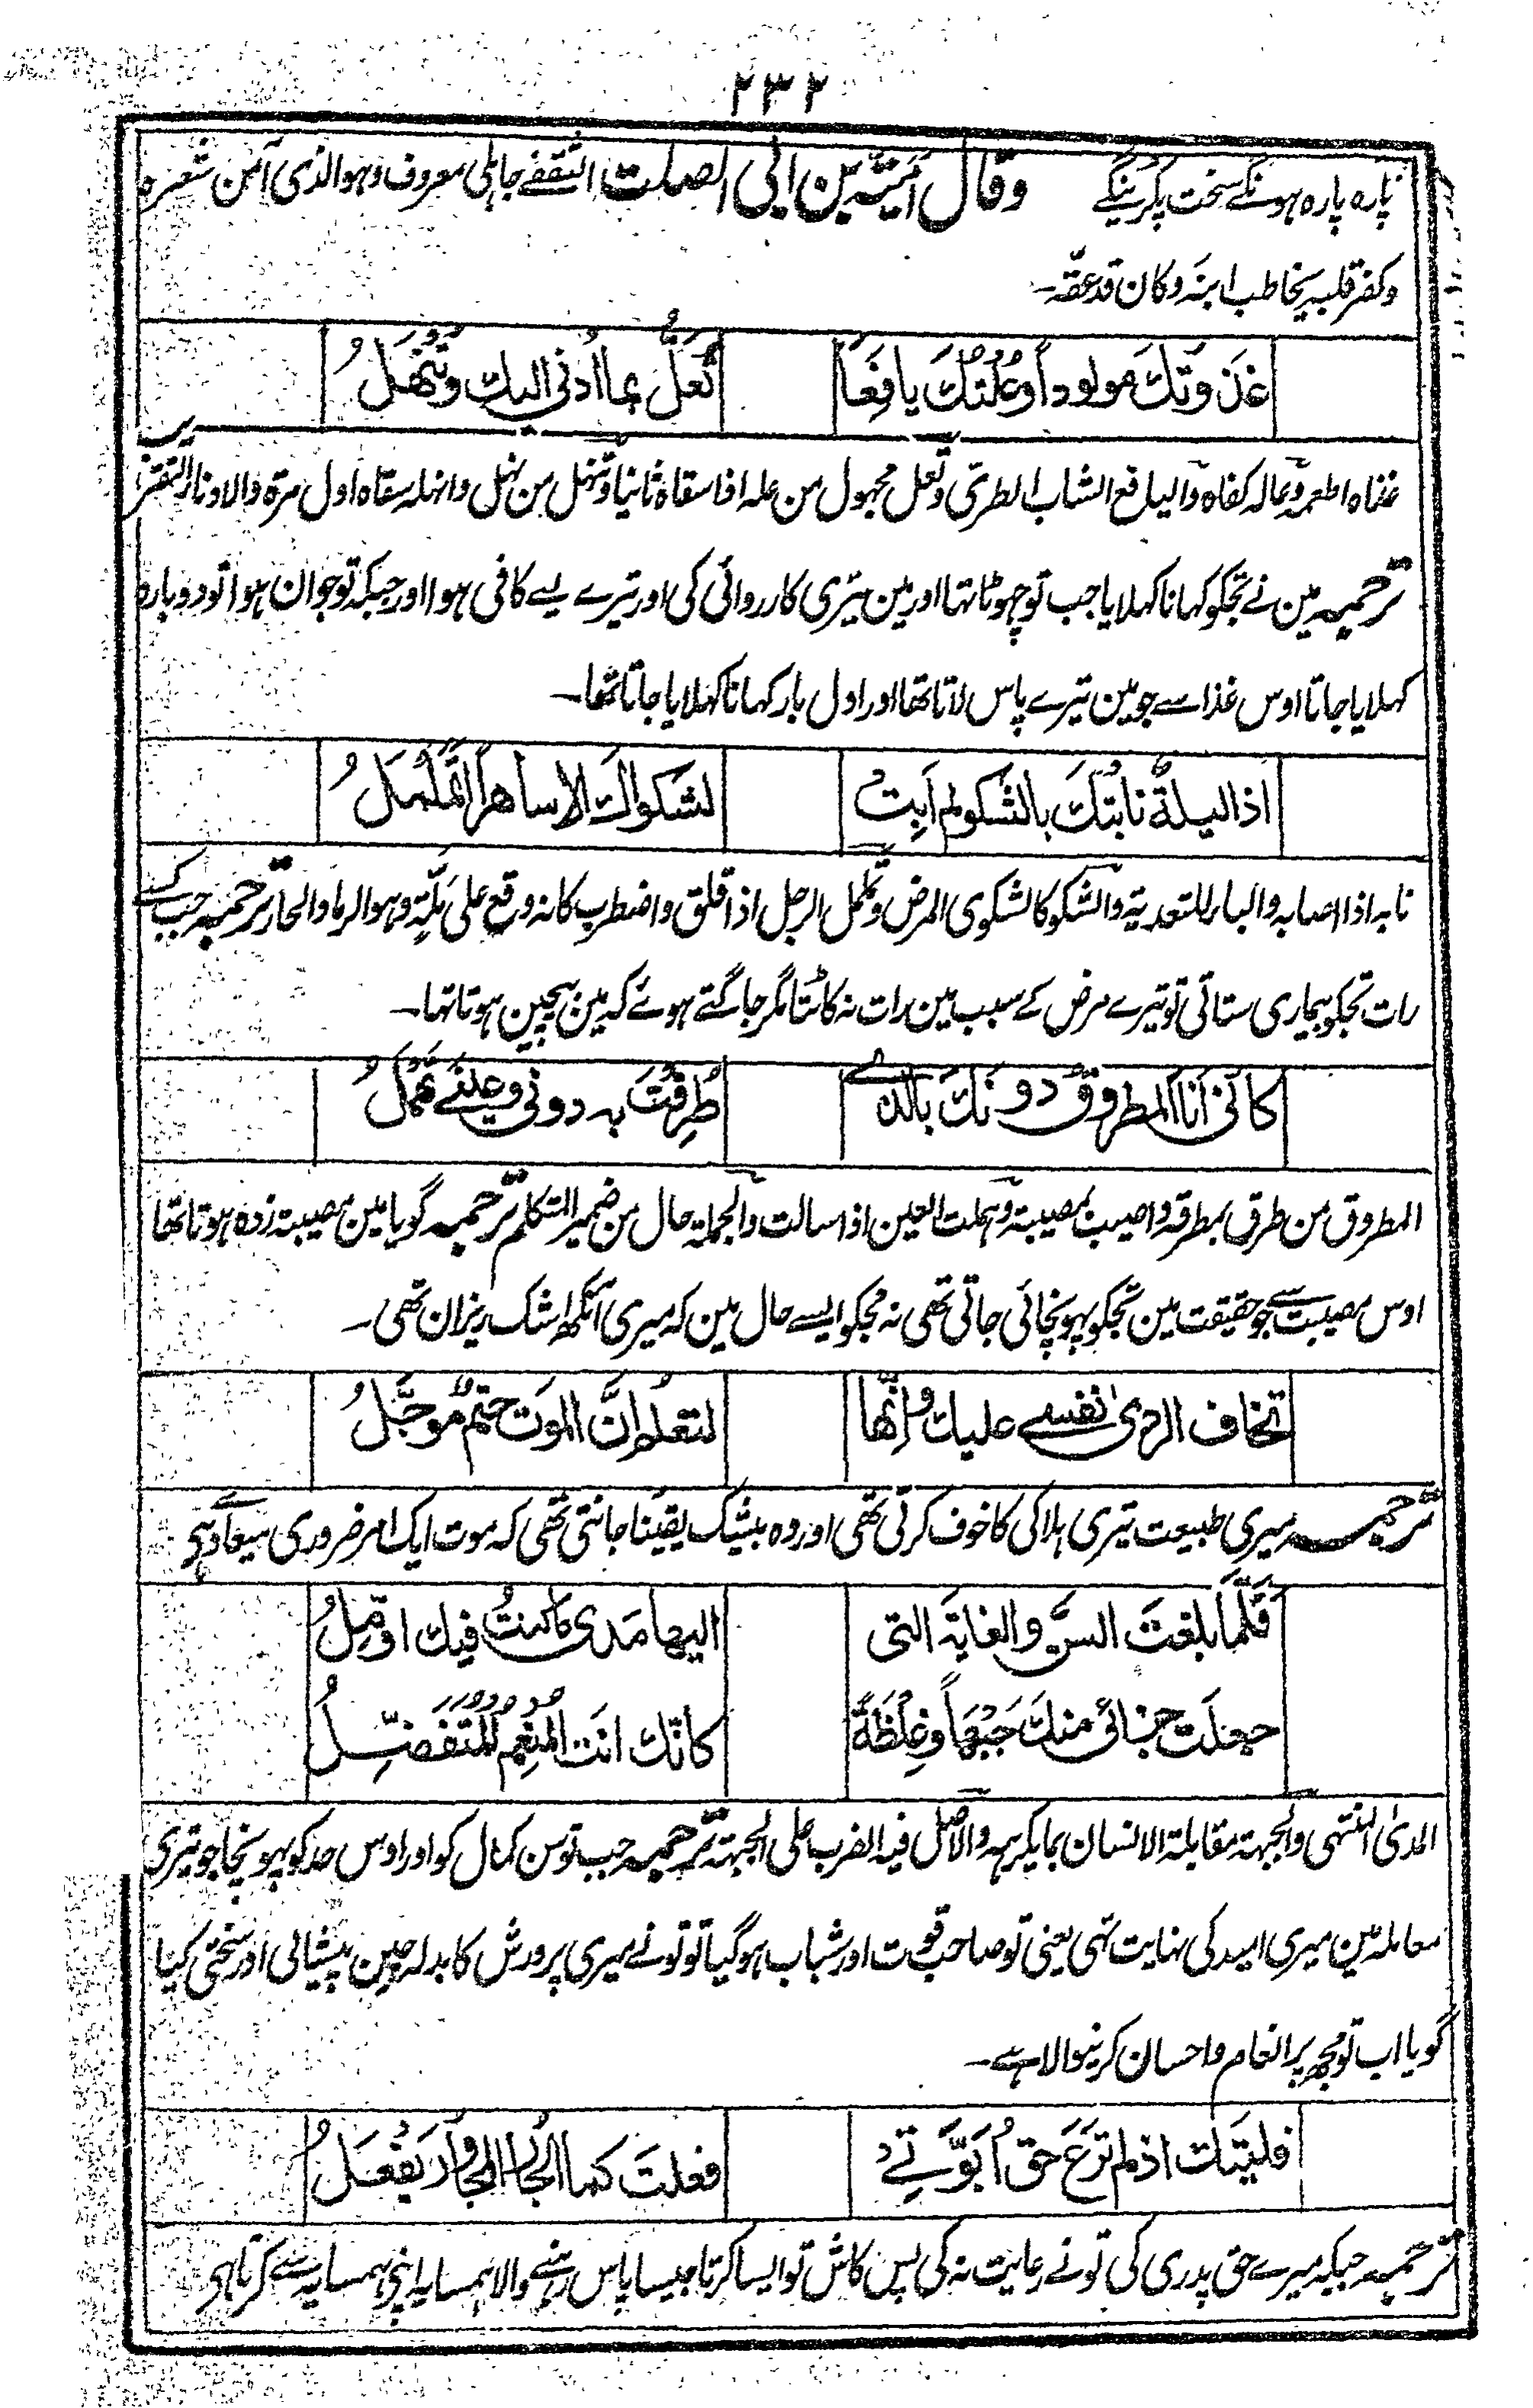 ٢٣٢
پارہ پارہ ہونگے سخت پکڑینگے وقال اُمَیَّۃ بن ابی الصلت الثقفے جاہلی معروف وہو الذی آمن شعرہ
وکفر قلبہ یخاطب ابنہ وکان قد عقّہ۔
غذوتك مولوداً وعُلتُك يافعاً تُعَلُّ بما اُدني اليك وتُنهَلُ
غذاہ اطعمہ وعالہ کفاہ والیافع الشاب الطری وتعل مجہول من علہ اذا سقاہ ثانیا وتنہل من نہل وانہلہ سقاہ اول مرۃ والادناء التقریب
ترجمہ مین نے تجکو کہانا کہلایا جب تو چہوٹا تہا اور مین تیری کارروائی کی اور تیرے لیے کافی ہوا اور جبکہ تو جوان ہوا تو دوبارہ
کہلایا جاتا اوس غذا سے جو مین تیرے پاس لاتا تھا اور اول بار کہانا کہلایا جاتا تھا۔
اذا ليلةٌ نابتكَ بالشكو لم اَبِت لشكواك الا ساهراً اَتَمَلْمَلُ
نابہ اذا اصابہ والباء للتعدیۃ والشکو کالشکوی المرض وتململ الرجل اذا قلق واضطرب کانہ وقع علی مَلّۃٍ وہو الرماد الحار ترجمہ جب کسی
رات تجکو بیماری ستاتی تو تیرے مرض کے سبب مین رات نہ کاٹتا مگر جاگتے ہوئے کہ مین بیچین ہوتا تہا۔
كانّي انا المطروق دونك بالّذے طُرِقتَ به دوني وعينے تَهمُلُ
المطروق من طرق بمطرقۃ واصیب بمصیبۃ وہملت العین اذا سالت والجملۃ حال من ضمیر المتکلم ترجمہ گویا مین مصیبتہ زدہ ہوتا تھا
اوس مصیبت سے جو حقیقت مین تجکو پہونچائی جاتی تھی نہ مجکو ایسے حال مین کہ میری آنکھ اشک ریزان تھی۔
تخاف الردى نفسے عليك وانّها لتعلم انَّ الموت حتمٌ مؤجَّلُ
ترجمہ میری طبیعت تیری ہلاکی کا خوف کرتی تھی اور وہ بیشک یقینا جانتی تھی کہ موت ایک امر ضروری میعادی ہے
فلمّا بلغتَ السنّ والغايةَ التى اليها مَدى ما كنتُ فيك اؤمّلُ
جعلتَ جزائى منك جَبْهاً وغِلظَةً كانّك انت المُنعِم المُتَفَضِّلُ
المدیٰ المنتہی والجبہۃ مقابلۃ الانسان بما یکرہہ والاصل فیہ الضرب علی الجبہۃ ترجمہ جب تو سن کمال کو اور اوس حد کو پہونچا جو تیری
معاملہ مین میری امید کی نہایت تھی یعنی تو صاحب قوت اور شباب ہوگیا تو تو نے میری پرورش کا بدلہ چین پیشانی اور سختی کیا
گویا اب تو مجھپر انعام واحسان کرنیوالا ہے۔
فليتك اذ لم ترعَ حقَ اُبوّتے فعلتَ كما الجار المجاور يفعلُ
ترجمہ جبکہ میرے حق پدری کی تو نے رعایت نہ کی پس کاش تو ایسا کرتا جیسا پاس رہنے والا ہمسایہ اپنی ہمسایہ سے کرتا ہی